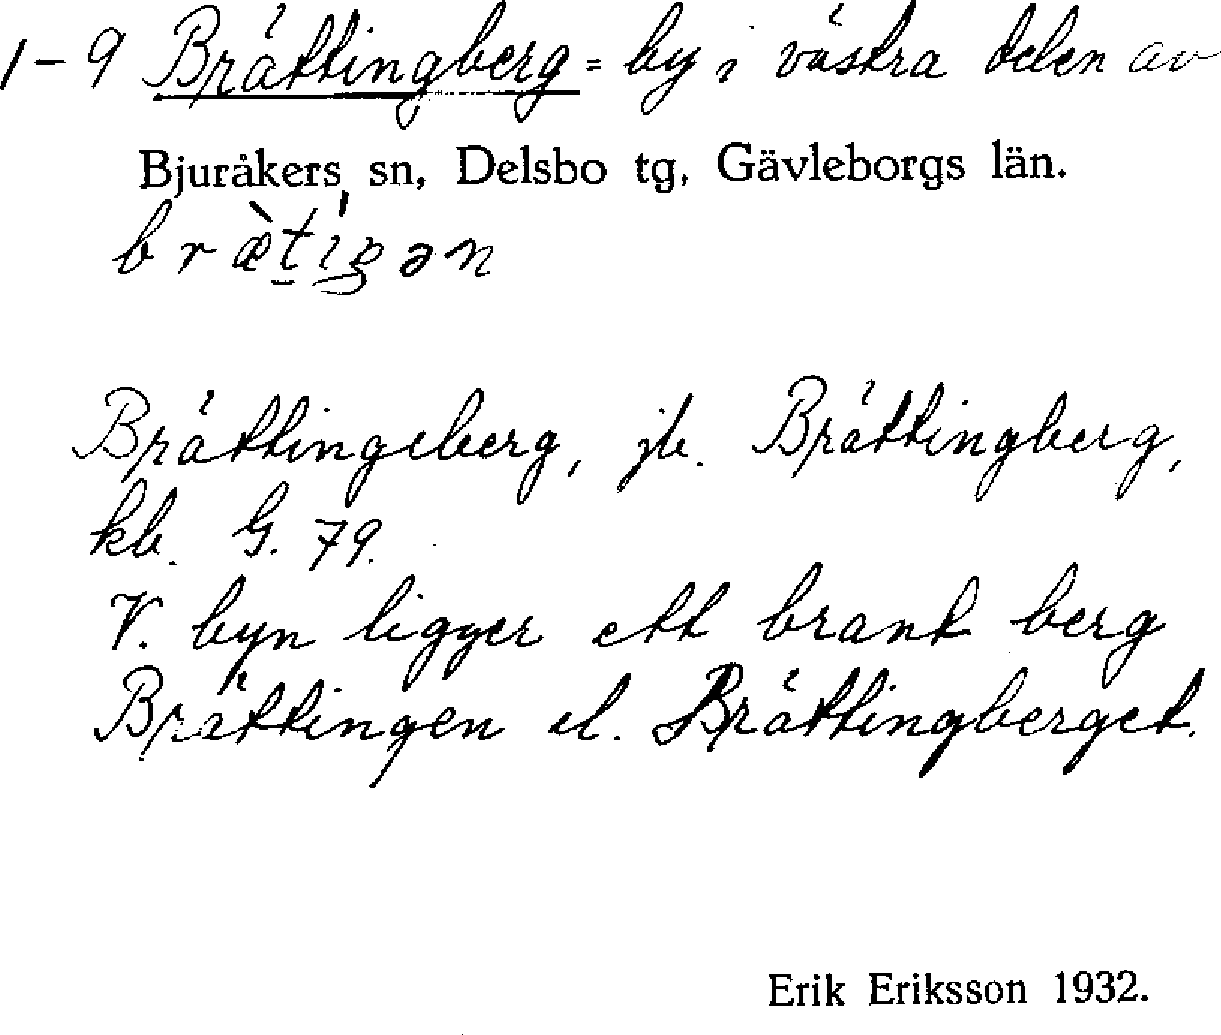 1-9 Brättingberg = by i västra delen av
Bjuråkers sn, Delsbo tg, Gävleborgs län.
Brättingeberg, jb. Brättingberg,
kb. G. 79.
V. byn ligger ett brant berg
Brättingen el. Brättingberget.
Erik Eriksson 1932.